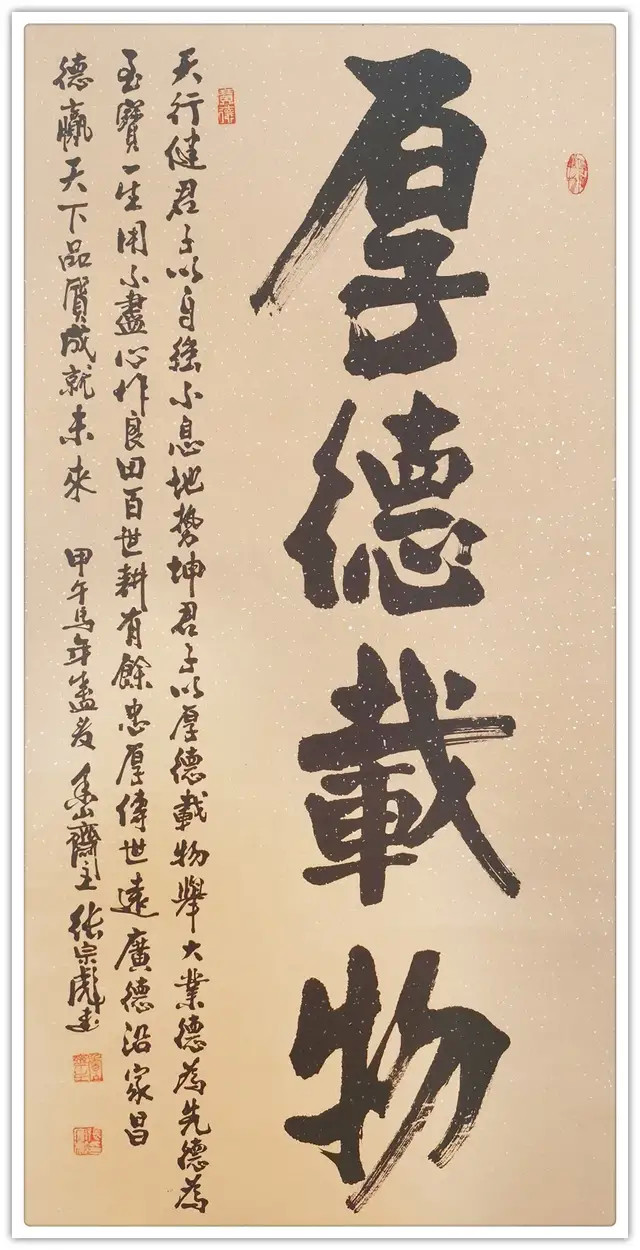 厚德載物
天行健君子以自強不息地勢坤君子以厚德載物舉大業德為先德為
至寶一生用不盡心作良田百世耕有餘忠厚傳世遠廣德沿家昌
德贏天下品質成就未來
甲午馬年 齋主張宗彪書